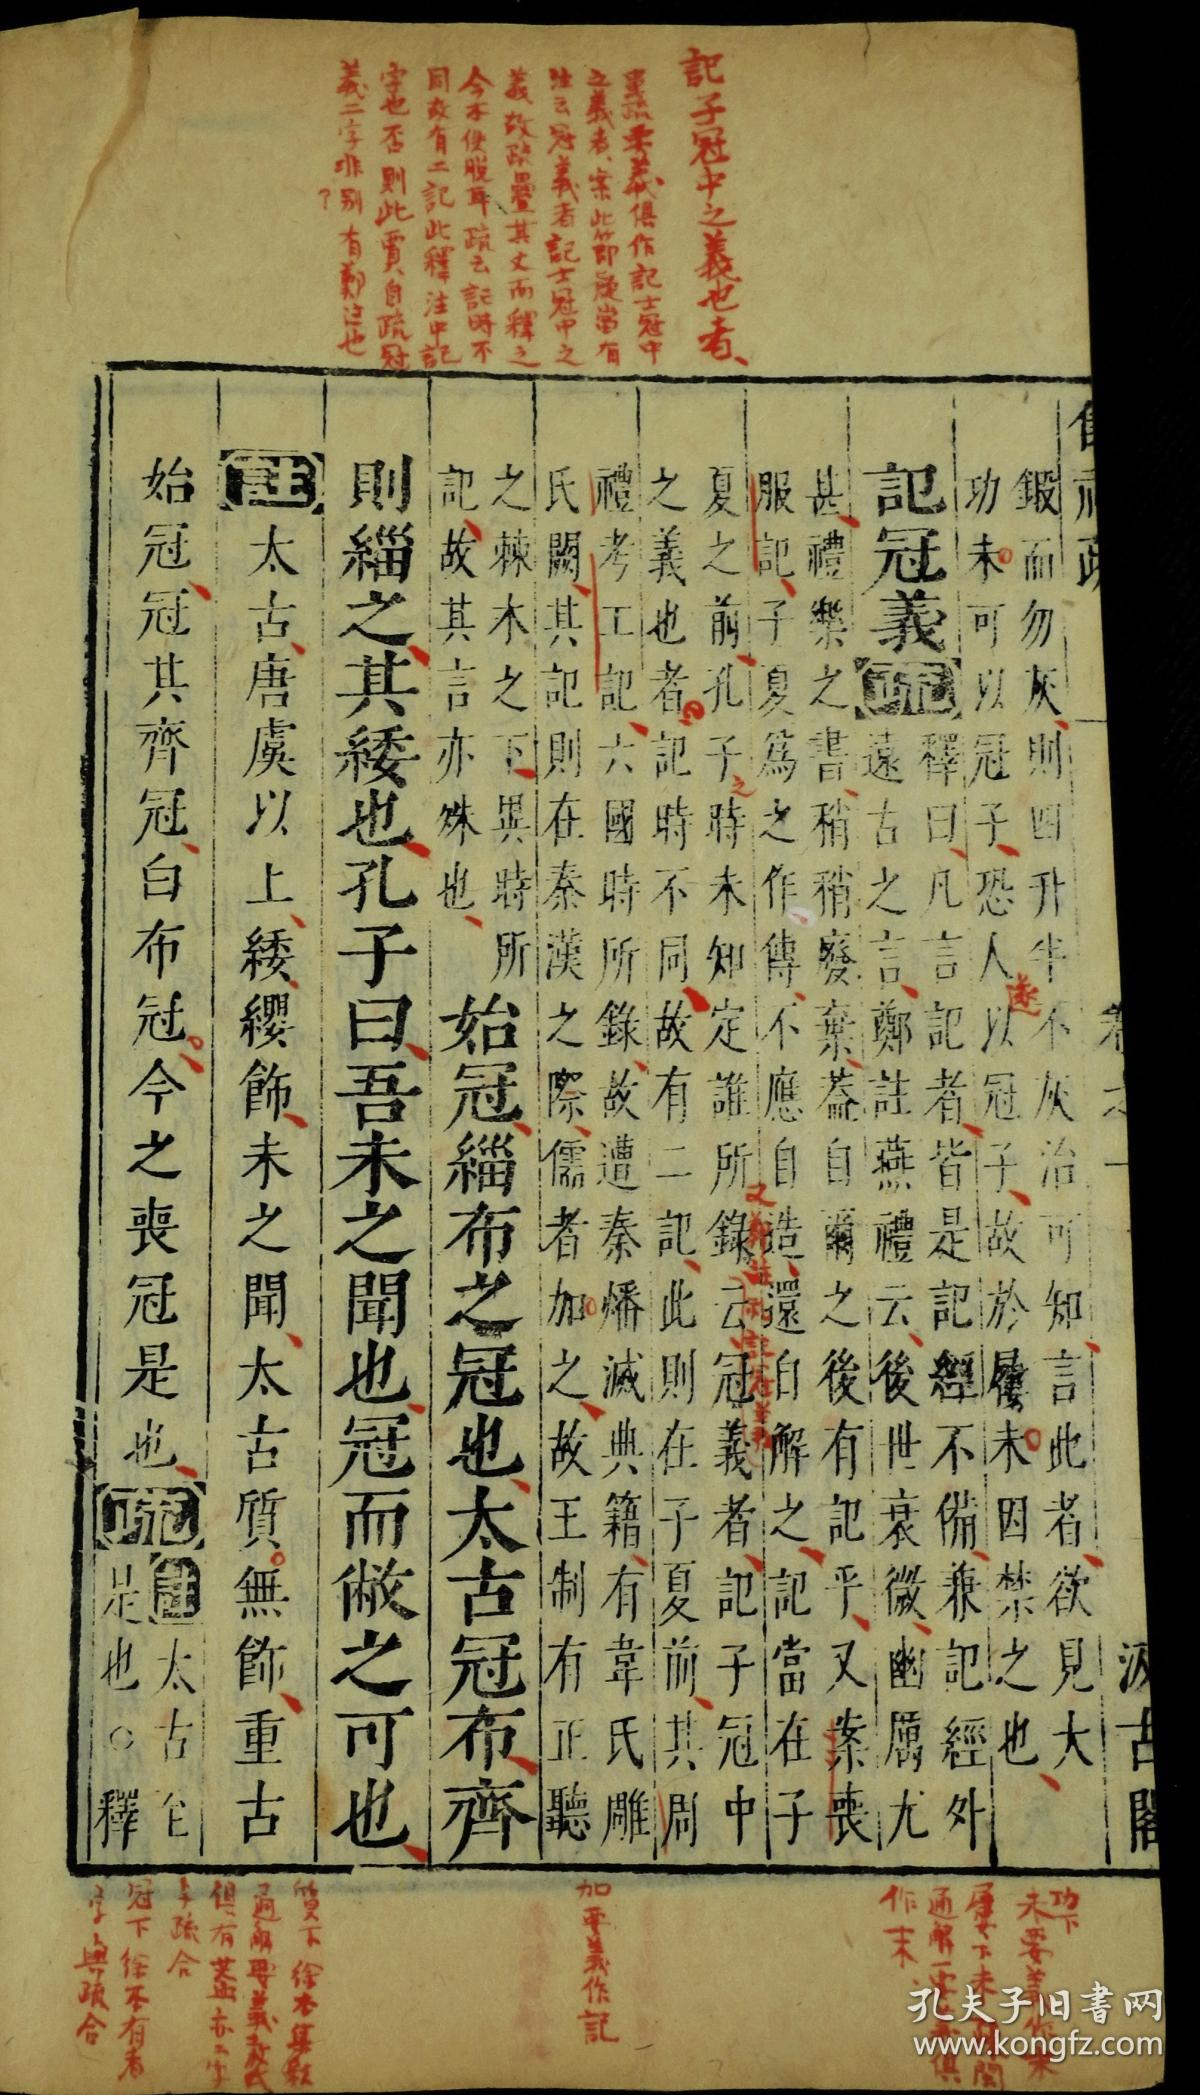 記子冠中之義也者、
單疏要義俱作記士冠中
之義者、案此節疑當有
注云冠義者記士冠中之
義故疏疊其文而釋之
今本使脫耳疏云記時不
同故有二記此釋注中記
字也否則此賈自疏冠
義二字非別有鄭注也
?
儀禮疏
卷之一
汲古閣
鍛而勿灰則四升半不灰治可知言此者欲見大
功未可以冠子恐人以冠子故於屨末因禁之也
記冠義
疏
釋曰凡言記者皆是記經不備兼記經外
遠古之言鄭註燕禮云後世衰微幽厲尤
甚禮樂之書稍稍廢棄蓋自爾之後有記乎又案喪
服記子夏爲之作傳不應自造還自解之記當在子
夏之前孔子時未知定誰所錄云冠義者記子冠中
之義也者記時不同故有二記此則在子夏前其周
禮考工記六國時所錄故遭秦燔滅典籍有韋氏雕
氏闕其記則在秦漢之際儒者加之故王制有正聽
之棘木之下異時所
記故其言亦殊也
始冠緇布之冠也太古冠布齊
則緇之其緌也孔子曰吾未之聞也冠而敝之可也
註
太古唐虞以上緌纓飾未之聞太古質無飾重古
始冠冠其齊冠白布冠今之喪冠是也
疏
註
太古至
是也○釋
之
遂
功下
作末
加要義作記
質下徐本集釋
通解要義敖氏
俱有蓋亦二字
與疏合
冠下徐本有者
字與疏合
孔夫子旧书网
www.kongfz.com